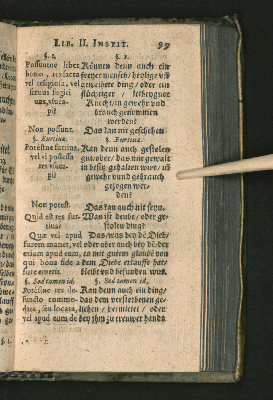 LIB. II. INSTIT. 99
§. 1. §. 1.
Possuntne liber Können denn auch ein
homo, res sacra freyer mensch/ heylige vñ
vel religiosa, vel geweihete ding/ oder ein
servus fugiti flüchtiger / leibeygner
vus, usuca- Knecht/ in gewehr vnd
pi? brauch genommen
werden?
Non possunt. Das kan nit geschehen
§. Furtiva. §. Furtiva.
Potestne furtiva, Kan denn auch gestolen
vel vi possessa gut/ oder/ das mit gewalt
res usuca- in besitz gehalten wirt/ in
pi? gewehr vnd gebrauch
gezogen wer-
den?
Non potest. Das kan auch nit seyn.
Quid est res fur- Was ist deube/ oder ge-
tiva? stolen ding?
Quæ vel apud Das/ was bey dē Dieb/
furem manet, vel oder aber auch bey dē/ der
etiam apud eum, es mit gutem glaube von
qui bona fide à dem Diebe erkaufft hat/
fure emerit. bleibt vnd befunden wirt.
§. Sed tamen id. §. Sed tamen id.
Potestne res de- Kan denn auch ein ding/
functo commo- das dem verstorbenen ge-
data, seu locata, liehen / vermietet / oder
vel apud eum de bey jhm zu trewer hand